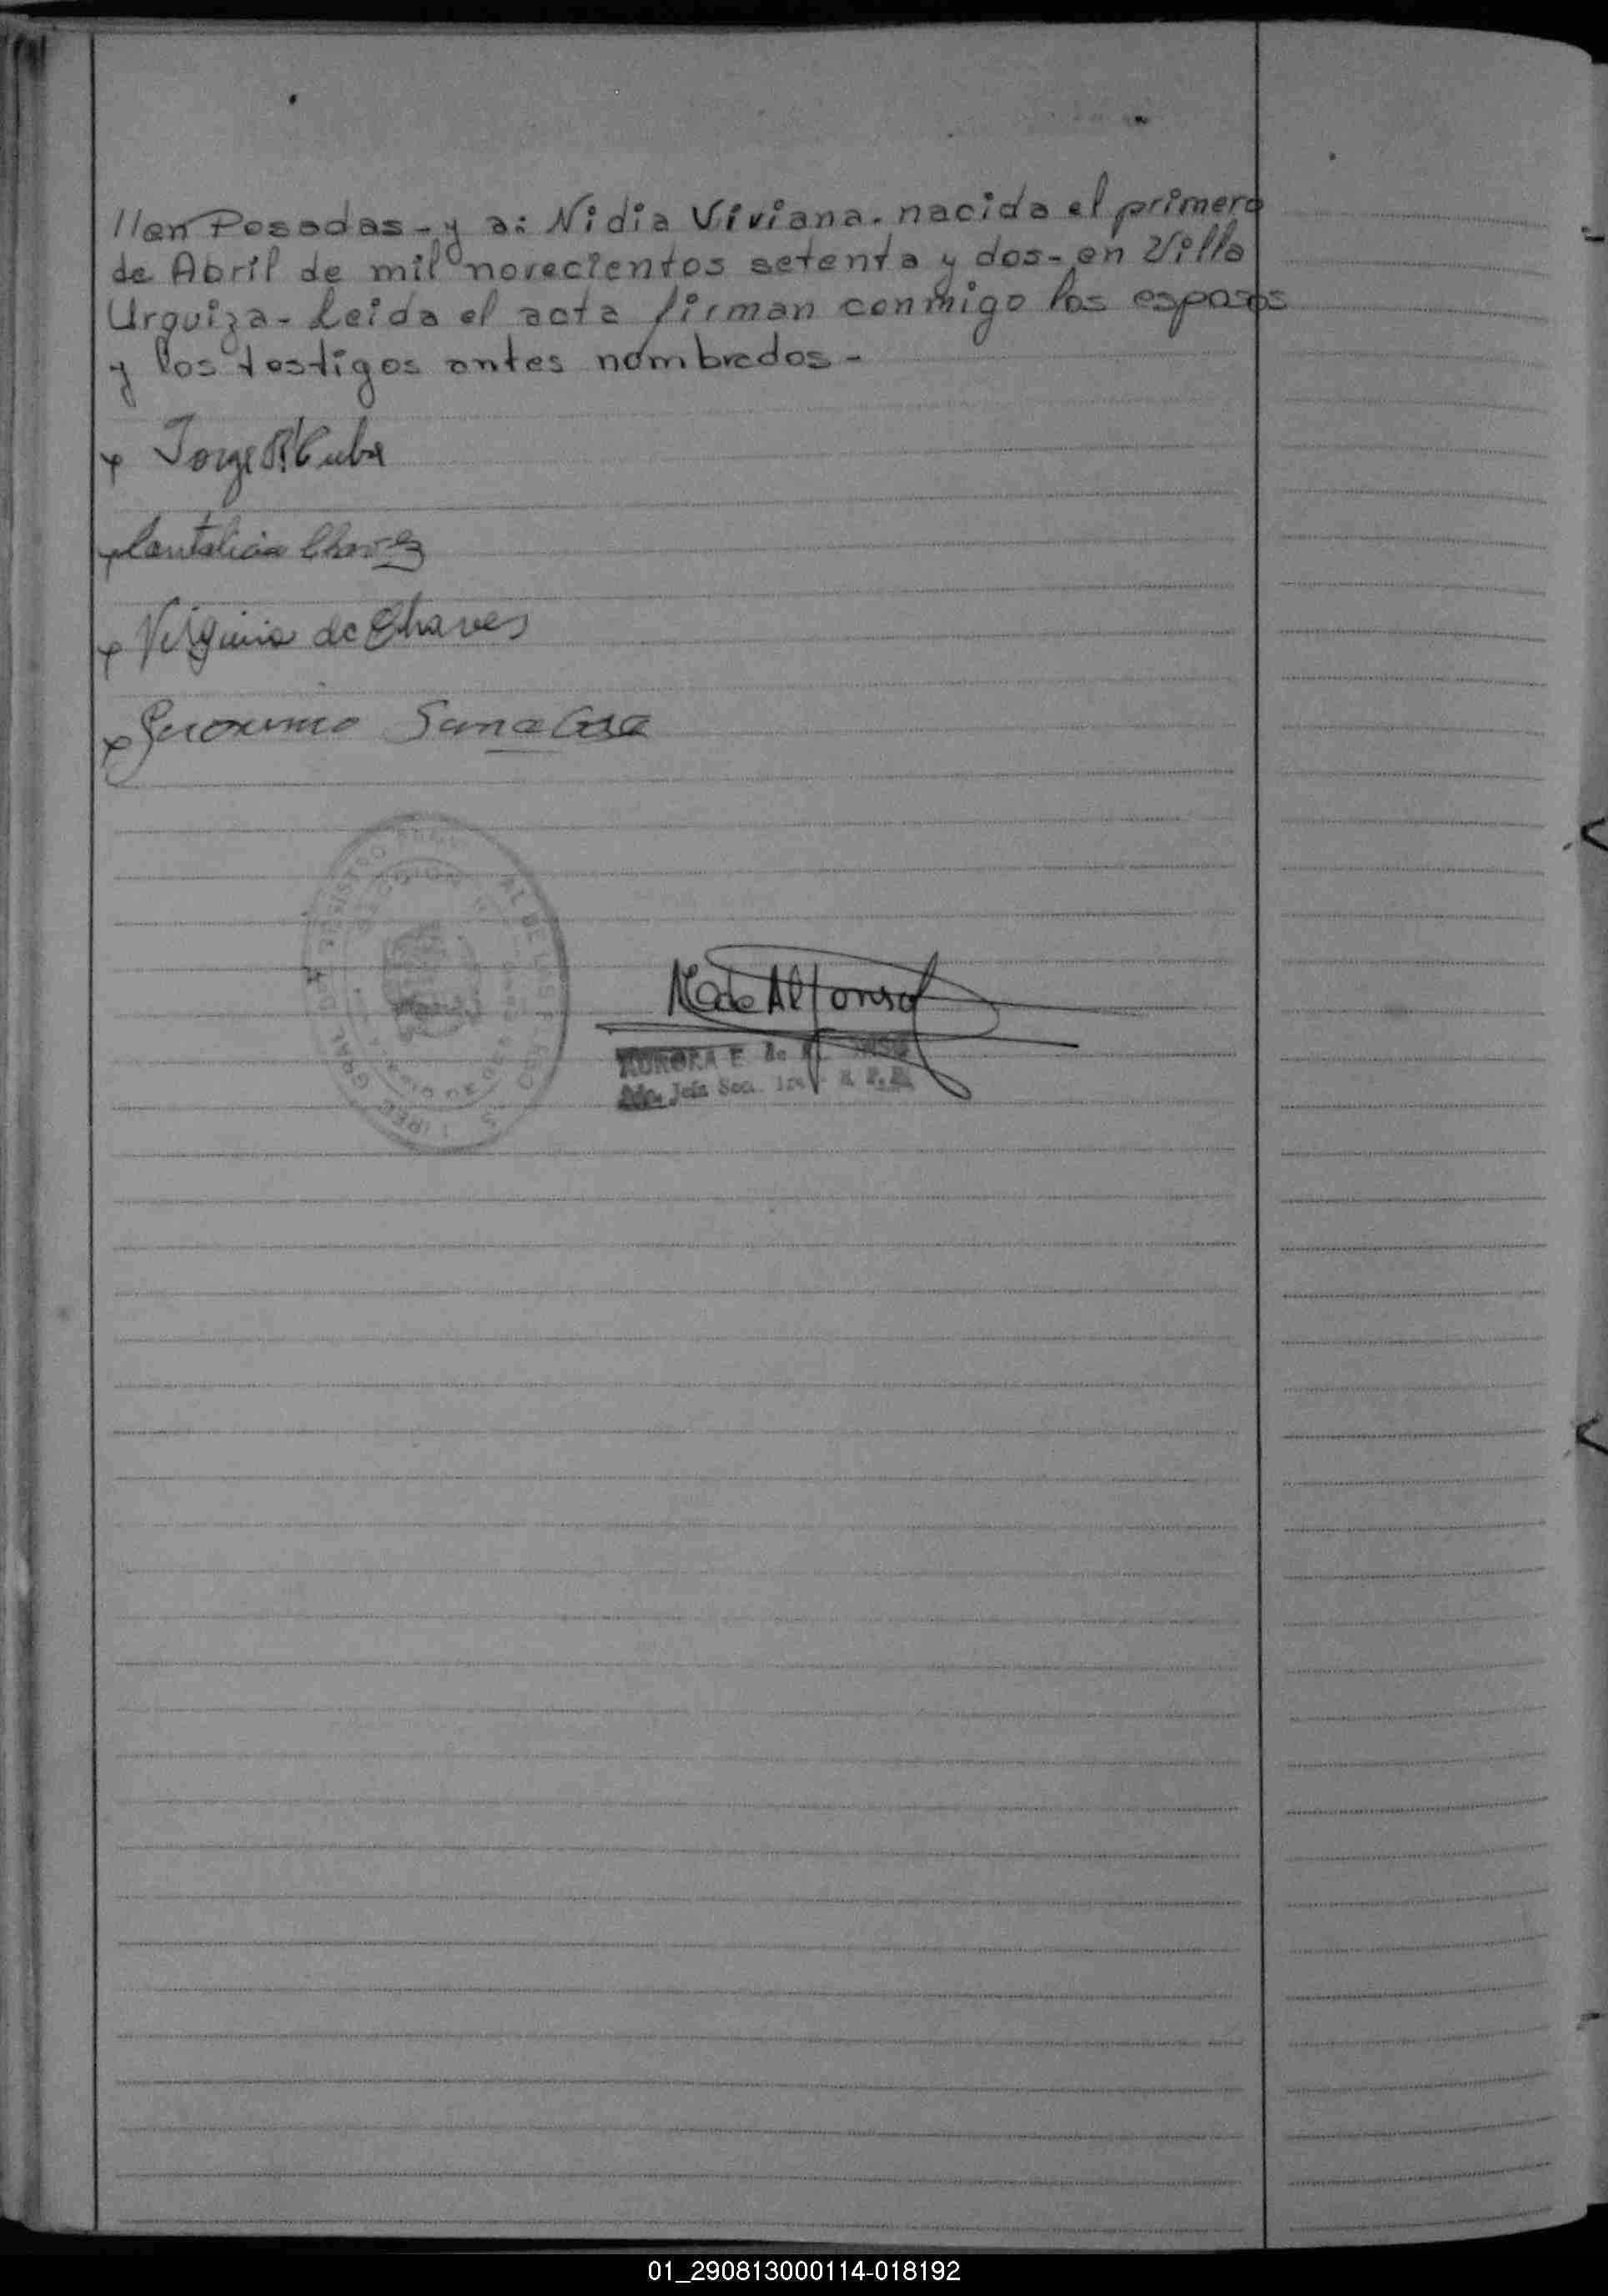 //en Posadas - y a: Nidia Viviana. nacida el primero
de Abril de mil novecientos setenta y dos - en Villa
Urquiza - Leida el acta firman conmigo los esposos
y los testigos antes nombrados -
x Jorge R Cuba
x Chavez
x Virginia de Chaves
x Geronimo
SECCION
A E de Alfonso
AURORA E. de
Jefa Secc.
01_290813000114-018192